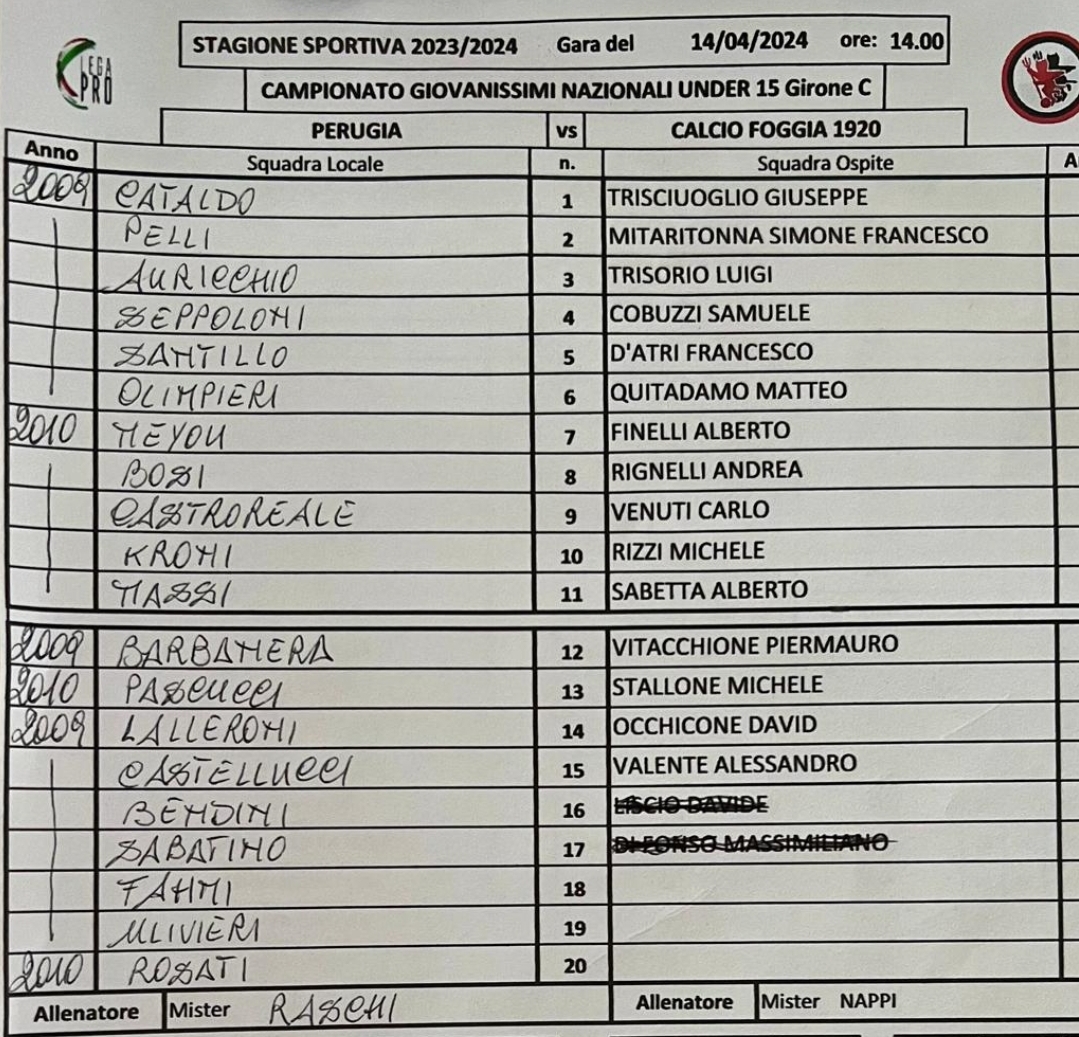 LEGA PRO
STAGIONE SPORTIVA 2023/2024 Gara del 14/04/2024 ore: 14.00
CAMPIONATO GIOVANISSIMI NAZIONALI UNDER 15 Girone C
PERUGIA vs CALCIO FOGGIA 1920
Anno Squadra Locale n. Squadra Ospite A
2009 CATALDO 1 TRISCIUOGLIO GIUSEPPE
PELLI 2 MITARITONNA SIMONE FRANCESCO
AURICCHIO 3 TRISORIO LUIGI
SEPPOLONI 4 COBUZZI SAMUELE
SANTILLO 5 D'ATRI FRANCESCO
OLIMPIERI 6 QUITADAMO MATTEO
2010 MEYOU 7 FINELLI ALBERTO
BOSI 8 RIGNELLI ANDREA
CASTROREALE 9 VENUTI CARLO
KRONI 10 RIZZI MICHELE
MASSI 11 SABETTA ALBERTO
2009 BARBANERA 12 VITACCHIONE PIERMAURO
2010 PASCUCCI 13 STALLONE MICHELE
2009 LALLERONI 14 OCCHICONE DAVID
CASTELLUCCI 15 VALENTE ALESSANDRO
BENDINI 16 LISCIO DAVIDE
SABATINO 17 DI FONSO MASSIMILIANO
FAHMI 18
ULIVIERI 19
2010 ROSATI 20
Allenatore Mister RASCHI Allenatore Mister NAPPI